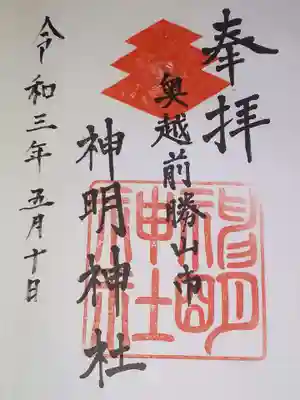 奉拝
奥越前勝山市
神明神社
令和三年五月十日